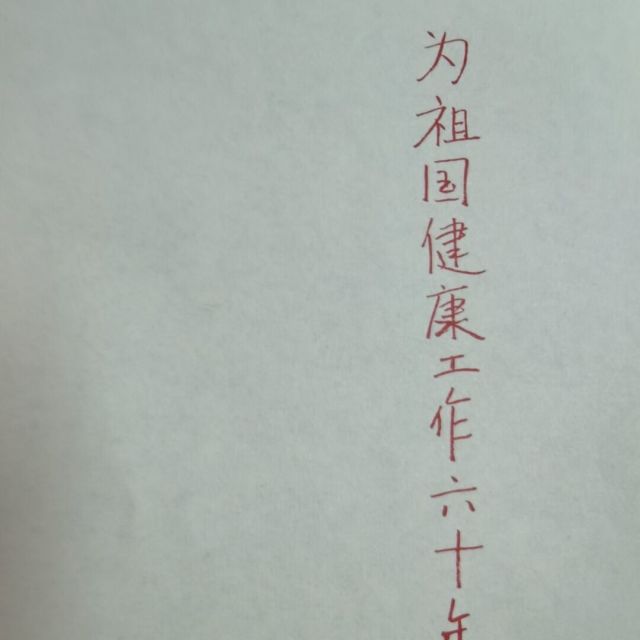 为祖国健康工作六十年